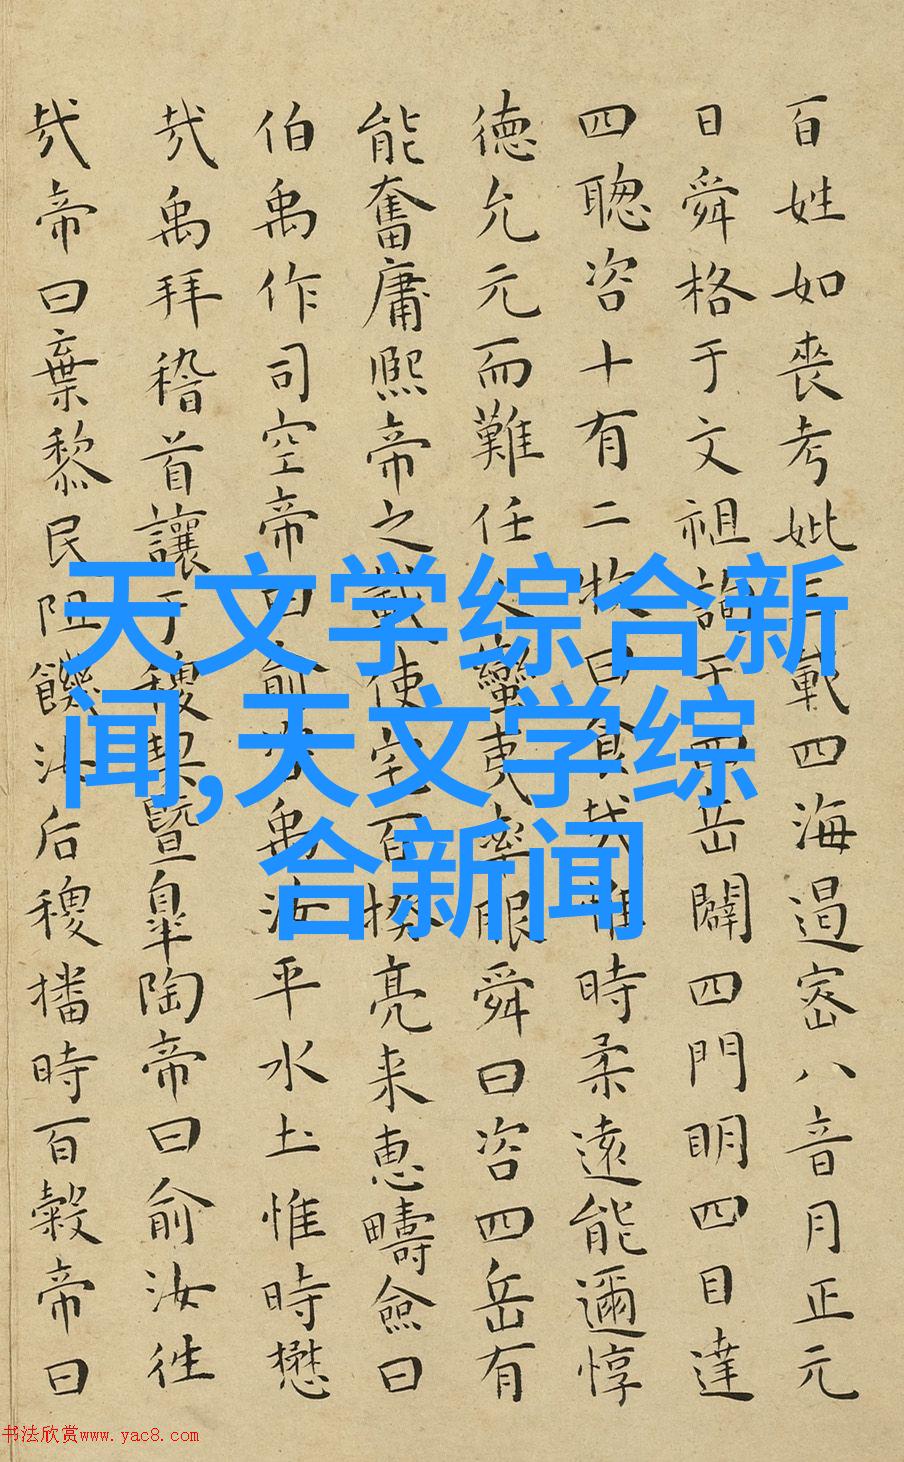 百姓如喪考妣三載四海遏密八音月正元
日舜格于文祖詢于四岳闢四門明四目達
四聦咨十有二牧曰食哉惟時柔遠能邇惇
徳允元而難任人蠻夷率服舜曰咨四岳有
能奮庸熙帝之載使宅百揆亮采恵疇僉曰
伯禹作司空帝曰俞咨禹汝平水土惟時懋
哉禹拜稽首讓于稷契暨皐陶帝曰俞汝往
哉帝曰棄黎民阻饑汝后稷播時百穀帝曰
天文学综合新
闻,天文学综
合新闻
书法欣赏www.yac8.com